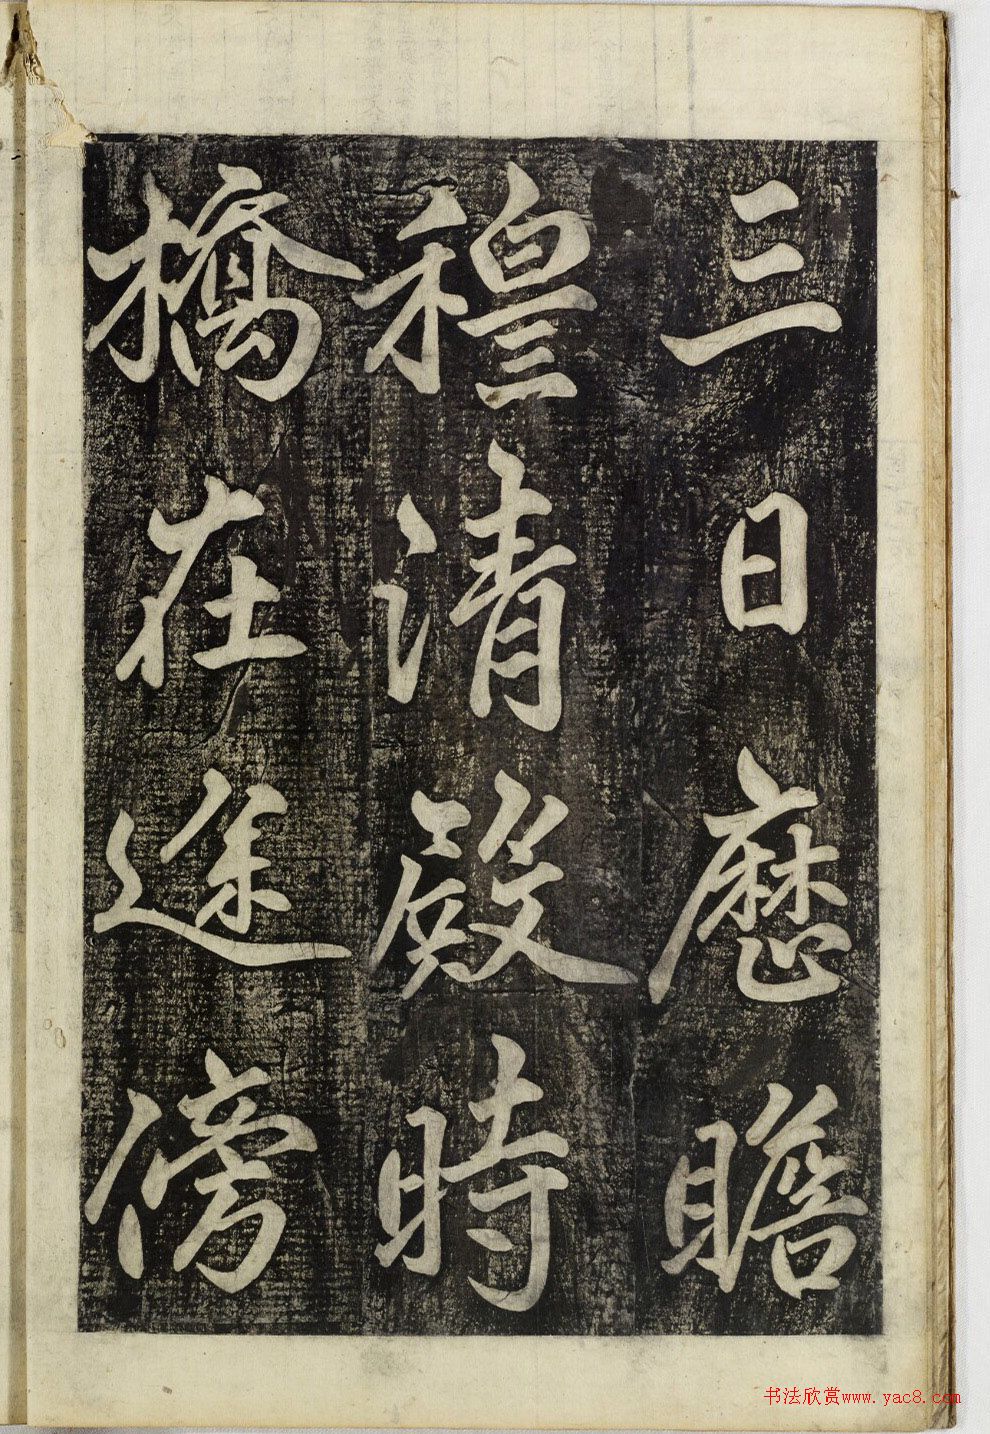 三日歷瞻
穆清殿時
橋在途傍
书法欣赏www.yac8.com